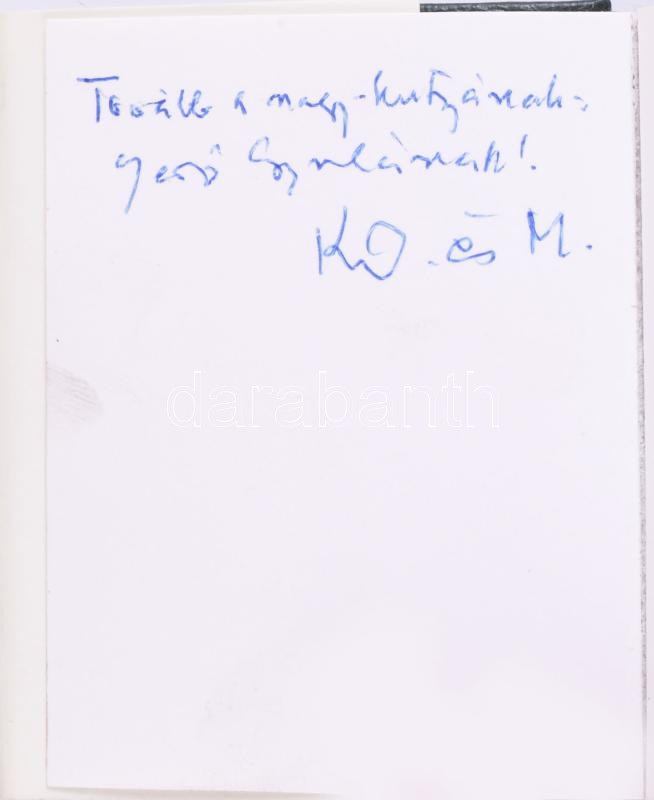 Tovább a nagy-kutyának-
Gyulának!
K. D. és M.
darabanth